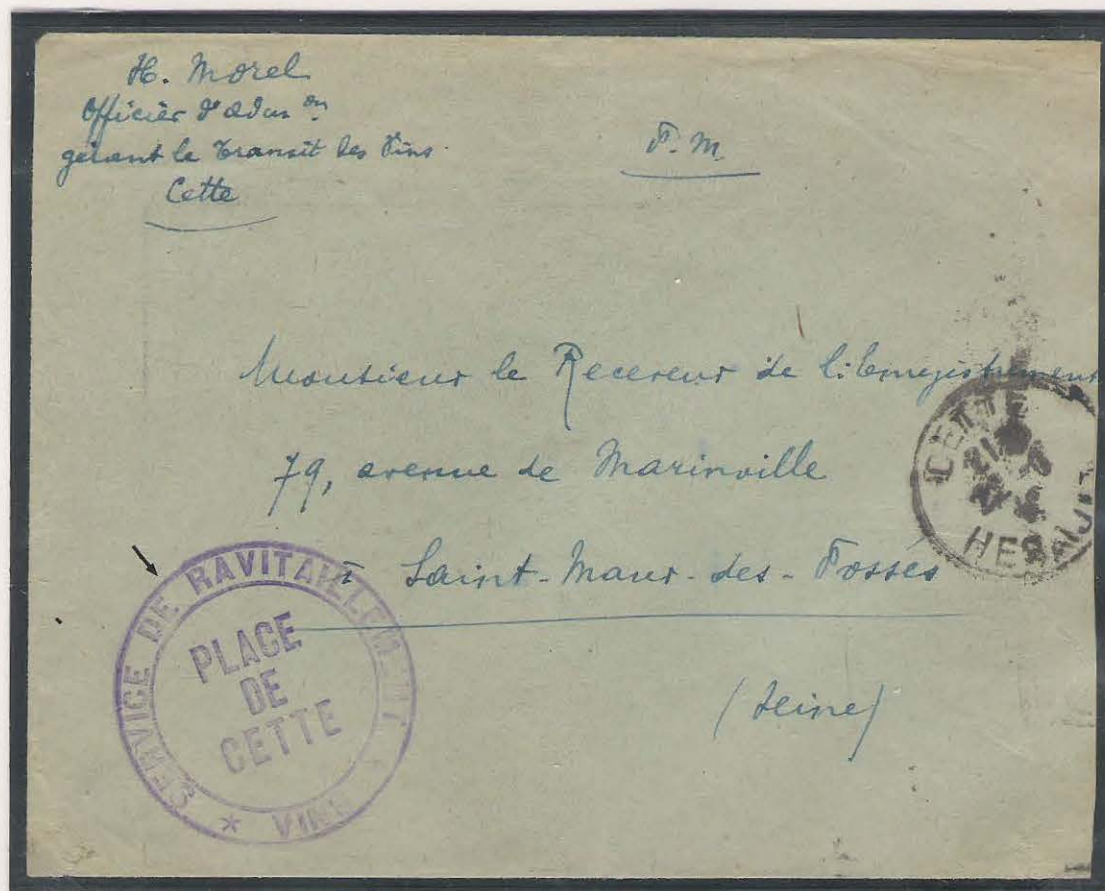 H. Morel
Officier d'adm on
gérant le transit des Vins
Cette
F.M.
Monsieur le Receveur de l'Enregistrement
79, avenue de Marinville
à Saint-Maur-des-Fossés
(Seine)
CETTE
HERAULT
SERVICE DE RAVITAILLEMENT
PLACE
DE
CETTE
* VINS